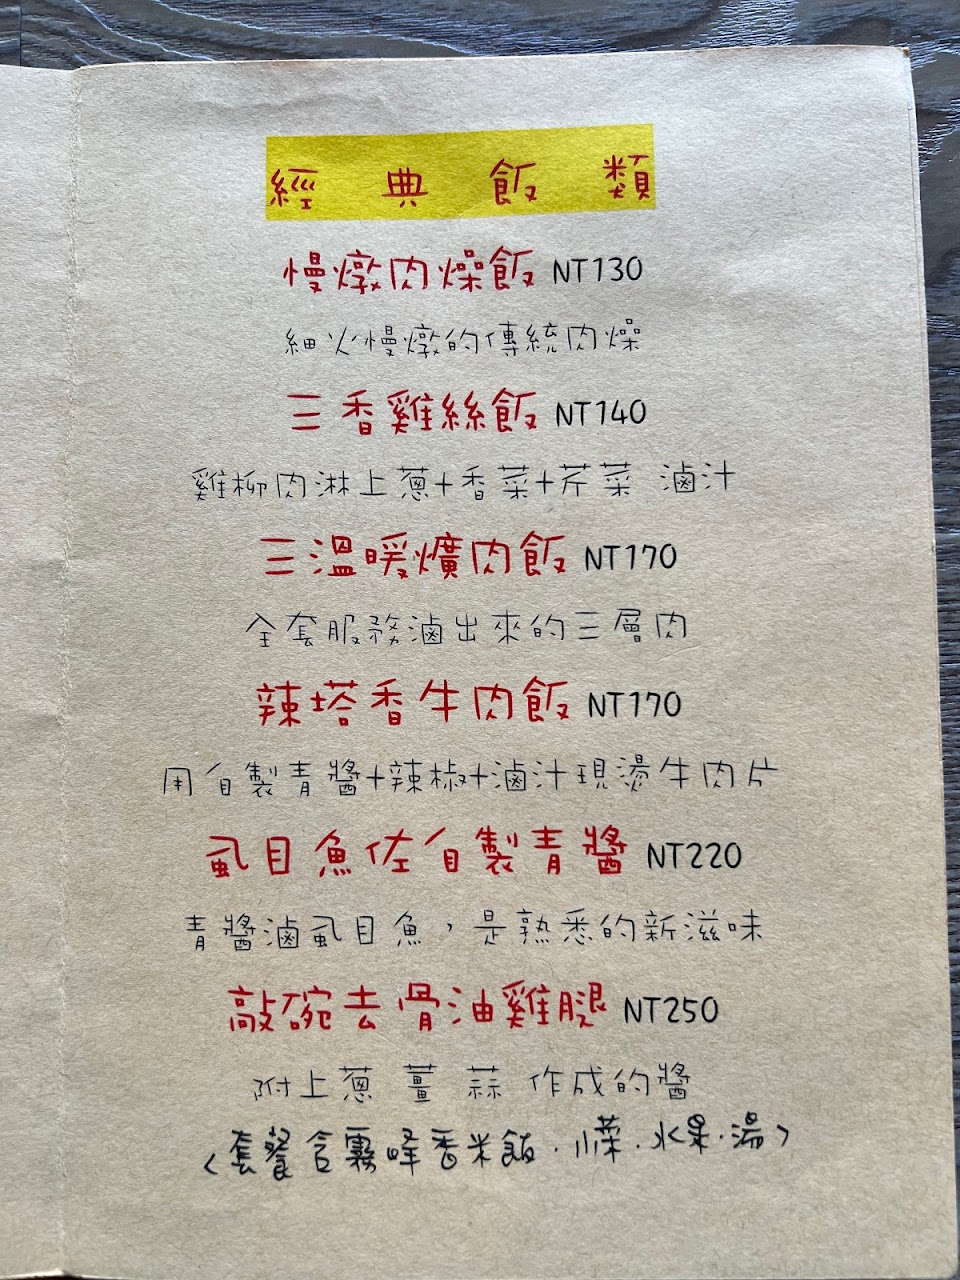 經典飯類
慢燉肉燥飯 NT130
細火慢燉的傳統肉燥
三香雞絲飯 NT140
雞柳肉淋上蔥+香菜+芹菜 滷汁
三溫暖爌肉飯 NT170
全套服務滷出來的三層肉
辣塔香牛肉飯 NT170
用自製青醬+辣椒+滷汁現燙牛肉片
虱目魚佐自製青醬 NT220
青醬滷虱目魚，是熟悉的新滋味
敲碗去骨油雞腿 NT250
附上蔥 薑 蒜 作成的醬
（套餐含霧峰香米飯．小菜．水果．湯）